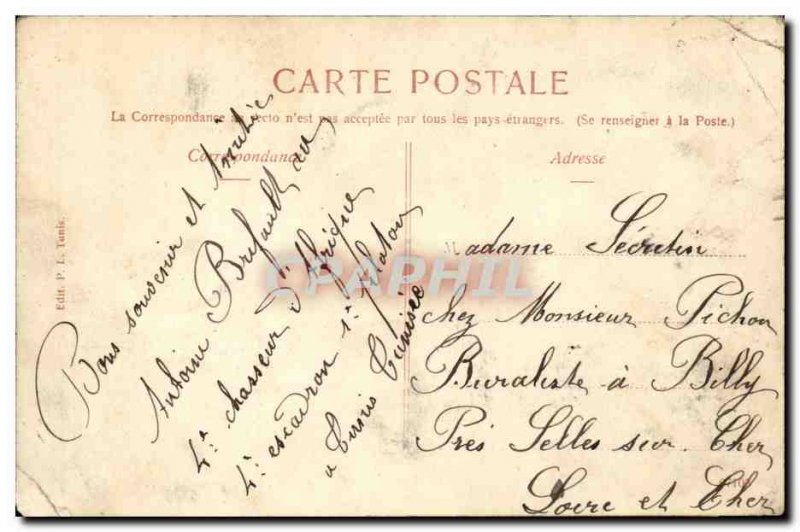 CARTE POSTALE
La Correspondance au recto n'est pas acceptée par tous les pays étrangers. (Se renseigner à la Poste.)
Correspondance
Adresse
Edit. P. L. Tunis.
Bons souvenir et Amitiés
Antoine Brifault au
4e chasseur d'Afrique
4e escadron 1er Platon
à Tunis Tunisie
Madame Sécretin
chez Monsieur Pichon
Buraliste à Billy
Près Selles sur Cher
Loire et Cher
CPAPHIL